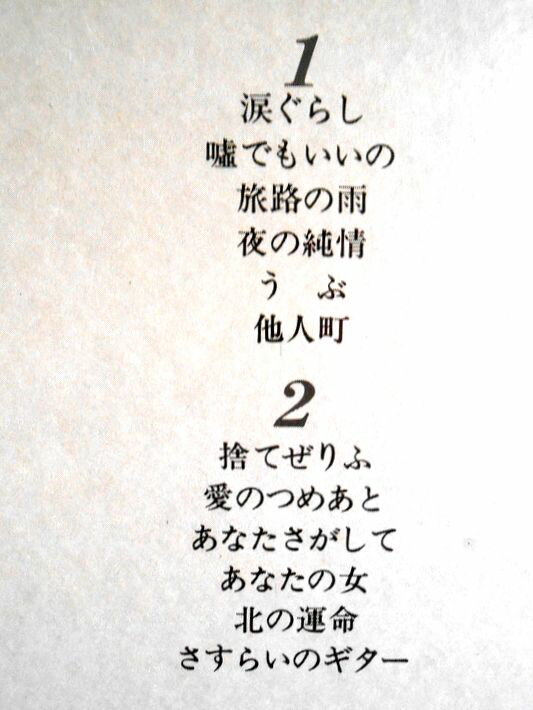 1
涙ぐらし
嘘でもいいの
旅路の雨
夜の純情
うぶ
他人町
2
捨てぜりふ
愛のつめあと
あなたさがして
あなたの女
北の運命
さすらいのギター